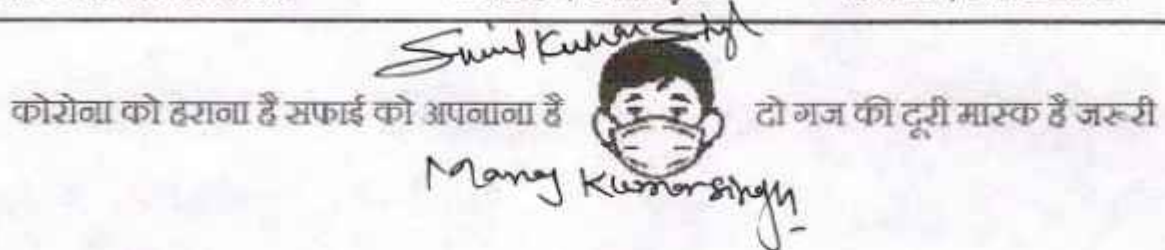 Sunil Kumar
कोरोना को हराना है सफाई को अपनाना है दो गज की दूरी मास्क है जरूरी
Manoj Kumar Singh